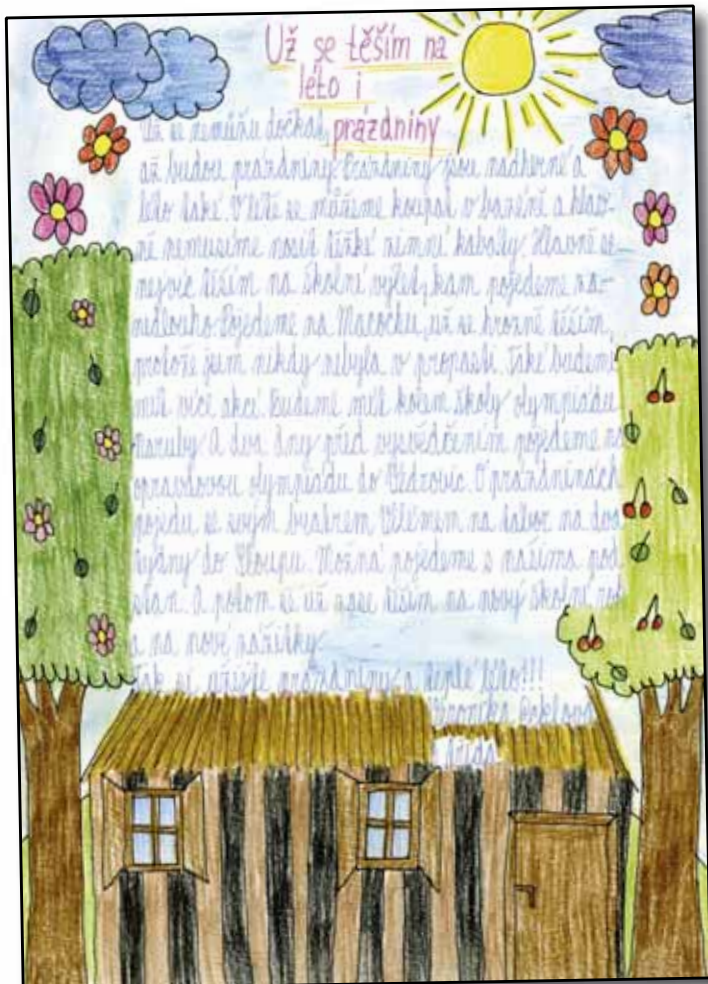 Už se těším na
léto i
prázdniny
Už se nemůžu dočkat,
až budou prázdniny. Prázdniny jsou nádherné a
léto také. V létě se můžeme koupat v bazéně a hlav-
ně nemusíme nosit těžké zimní kabáty. Hlavně se
nejvíc těším na školní výlet, kam pojedeme za-
nedlouho. Pojedeme na Macochu, už se hrozně těším,
protože jsem nikdy nebyla v propasti. Také budeme
mít více akcí. Budeme mít kolem školy olympiádu
naruby. A dva dny před vysvědčením pojedeme na
opravdovou olympiádu do Vedrovic. O prázdninách
pojedu se svým bratrem Vilémem na tábor na dva
týdny do Sloupu. Možná pojedeme s našima pod
stan. A potom se už zase těším na nový školní rok
a na nové zážitky.
Tak si užijte prázdniny a teplé léto!!!
Veronika
třída